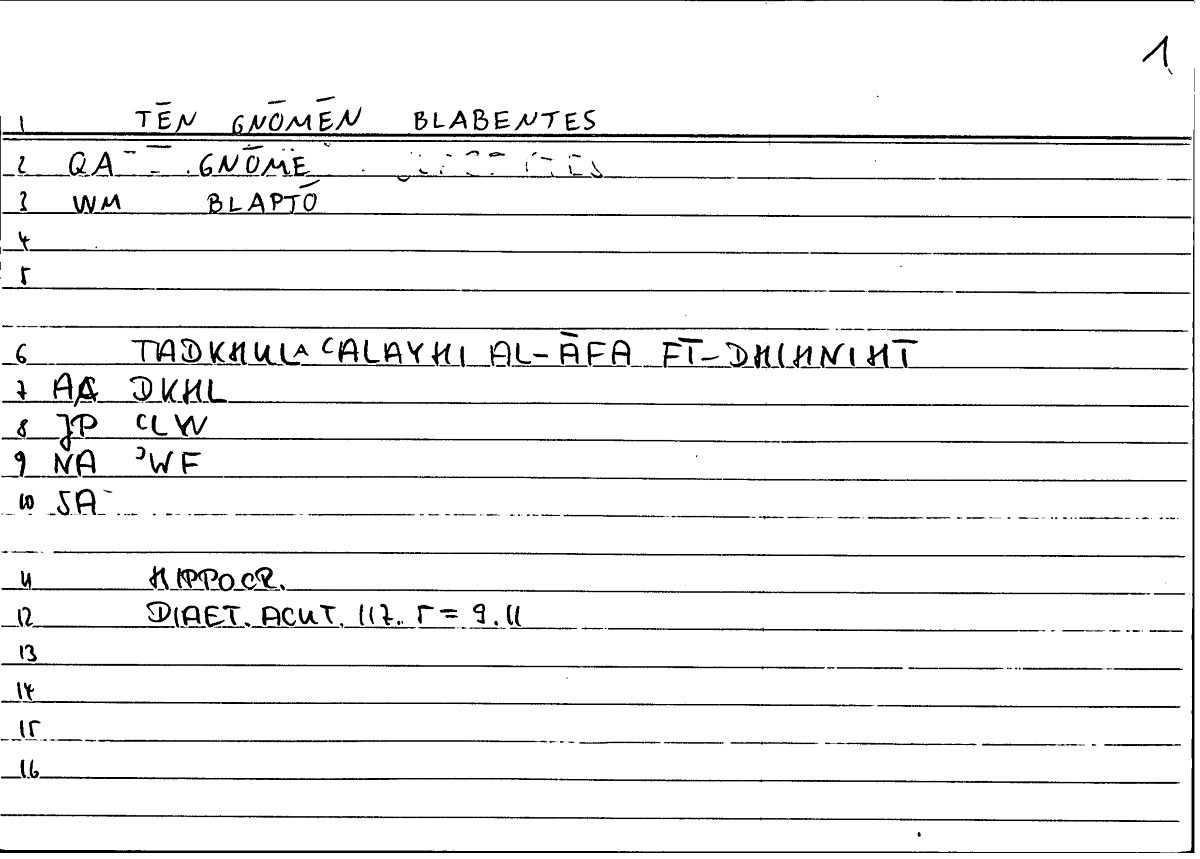 1
1 TĒN GNŌMĒN BLABENTES
2 QA GNŌMĒ
3 WM BLAPTŌ
4
5
6 TADKHULA ʿALAYHI AL-ĀFA FĪ-DHIHNIHĪ
7 AC DKHL
8 JP ʿLW
9 NA ʾWF
10 SA
11 HIPPOCR.
12 DIAET. ACUT. 117. 5 = 9.11
13
14
15
16